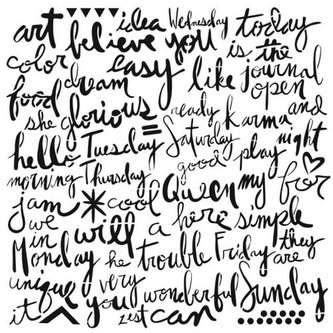 art idea Wednesday today
believe you is the
color easy like journal
food dream open
she glorious ready karma and
hello Tuesday Saturday night
morning Thursday good play
jam cool Queen my for
we will a here simple
in he trouble Friday they
Monday are
unique very wonderful Sunday
it you zest can